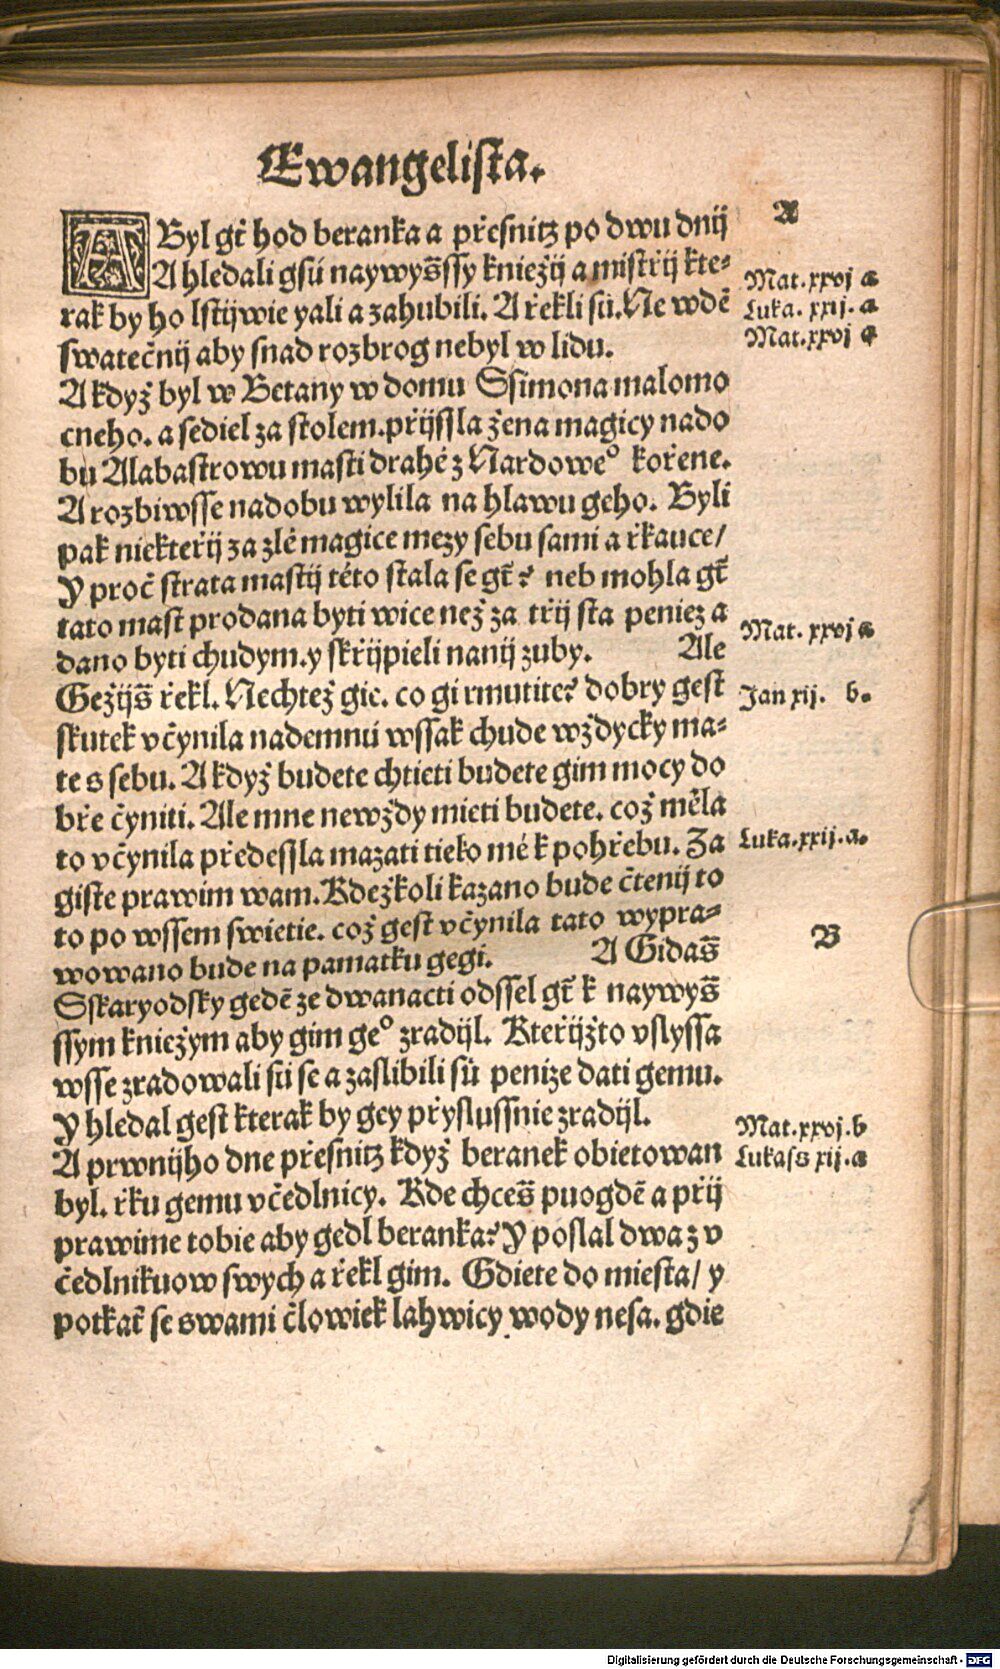 Ewangelista.
A Byl gt̄ hod beranka a přesnitz po dwu dnij
A hledali gsú naywyšssy kniežij a mistřij kte⸗
rak by ho lstijwie yali a zahubili. A řekli sú. Ne wdē
swatečnij aby snad rozbrog nebyl w lidu.
A když byl w Betany w domu Ssimona malomo
cneho. a sediel za stolem. přijssla žena magicy nado
bu Alabastrowu masti drahé z Nardoweº kořene.
A rozbiwsse nadobu wylila na hlawu geho. Byli
pak niekteřij za zlé magice mezy sebu sami a řkauce/
Y proč strata mastij této stala se gt̄? neb mohla gt̄
tato mast prodana byti wice než za třij sta peniez a
dano byti chudym. y skřijpieli nanij zuby. Ale
Gežijš řekl. Nechtež gie. co gi rmutite? dobry gest
skutek včynila nademnú wssak chude wždycky ma⸗
te s sebu. A když budete chtieti budete gim mocy do
bře čyniti. Ale mne newždy mieti budete. což měla
to včynila předessla mazati tielo mé k pohřebu. Za
giste prawim wam. Kdežkoli kazano bude čtenij to
to po wssem swietie. což gest včynila tato wypra⸗
wowano bude na pamatku gegi. A Gidaš
Sskaryodsky gedē ze dwanacti odssel gt̄ k naywyš
ssym kniežym aby gim geº zradijl. Kteřijžto vslyssa
wsse zradowali sú se a zaslibili sú penize dati gemu.
Y hledal gest kterak by gey přyslussnie zradijl.
A prwnijho dne přesnitz když beranek obietowan
byl. řku gemu včedlnicy. Kde chceš puogdē a přij
prawime tobie aby gedl beranka? Y poslal dwa z v
čedlnikuow swych a řekl gim. Gdiete do miesta/ y
potkat̄ se swami člowiek lahwicy wody nesa. gdie
A
Mat. xxvj a
Luka. xxij. a
Mat. xxvj a
Mat. xxvj a
Jan xij. b.
Luka. xxij. a.
B
Mat. xxvj. b
Lukass xij. a
Digitalisierung gefördert durch die Deutsche Forschungsgemeinschaft - DFG